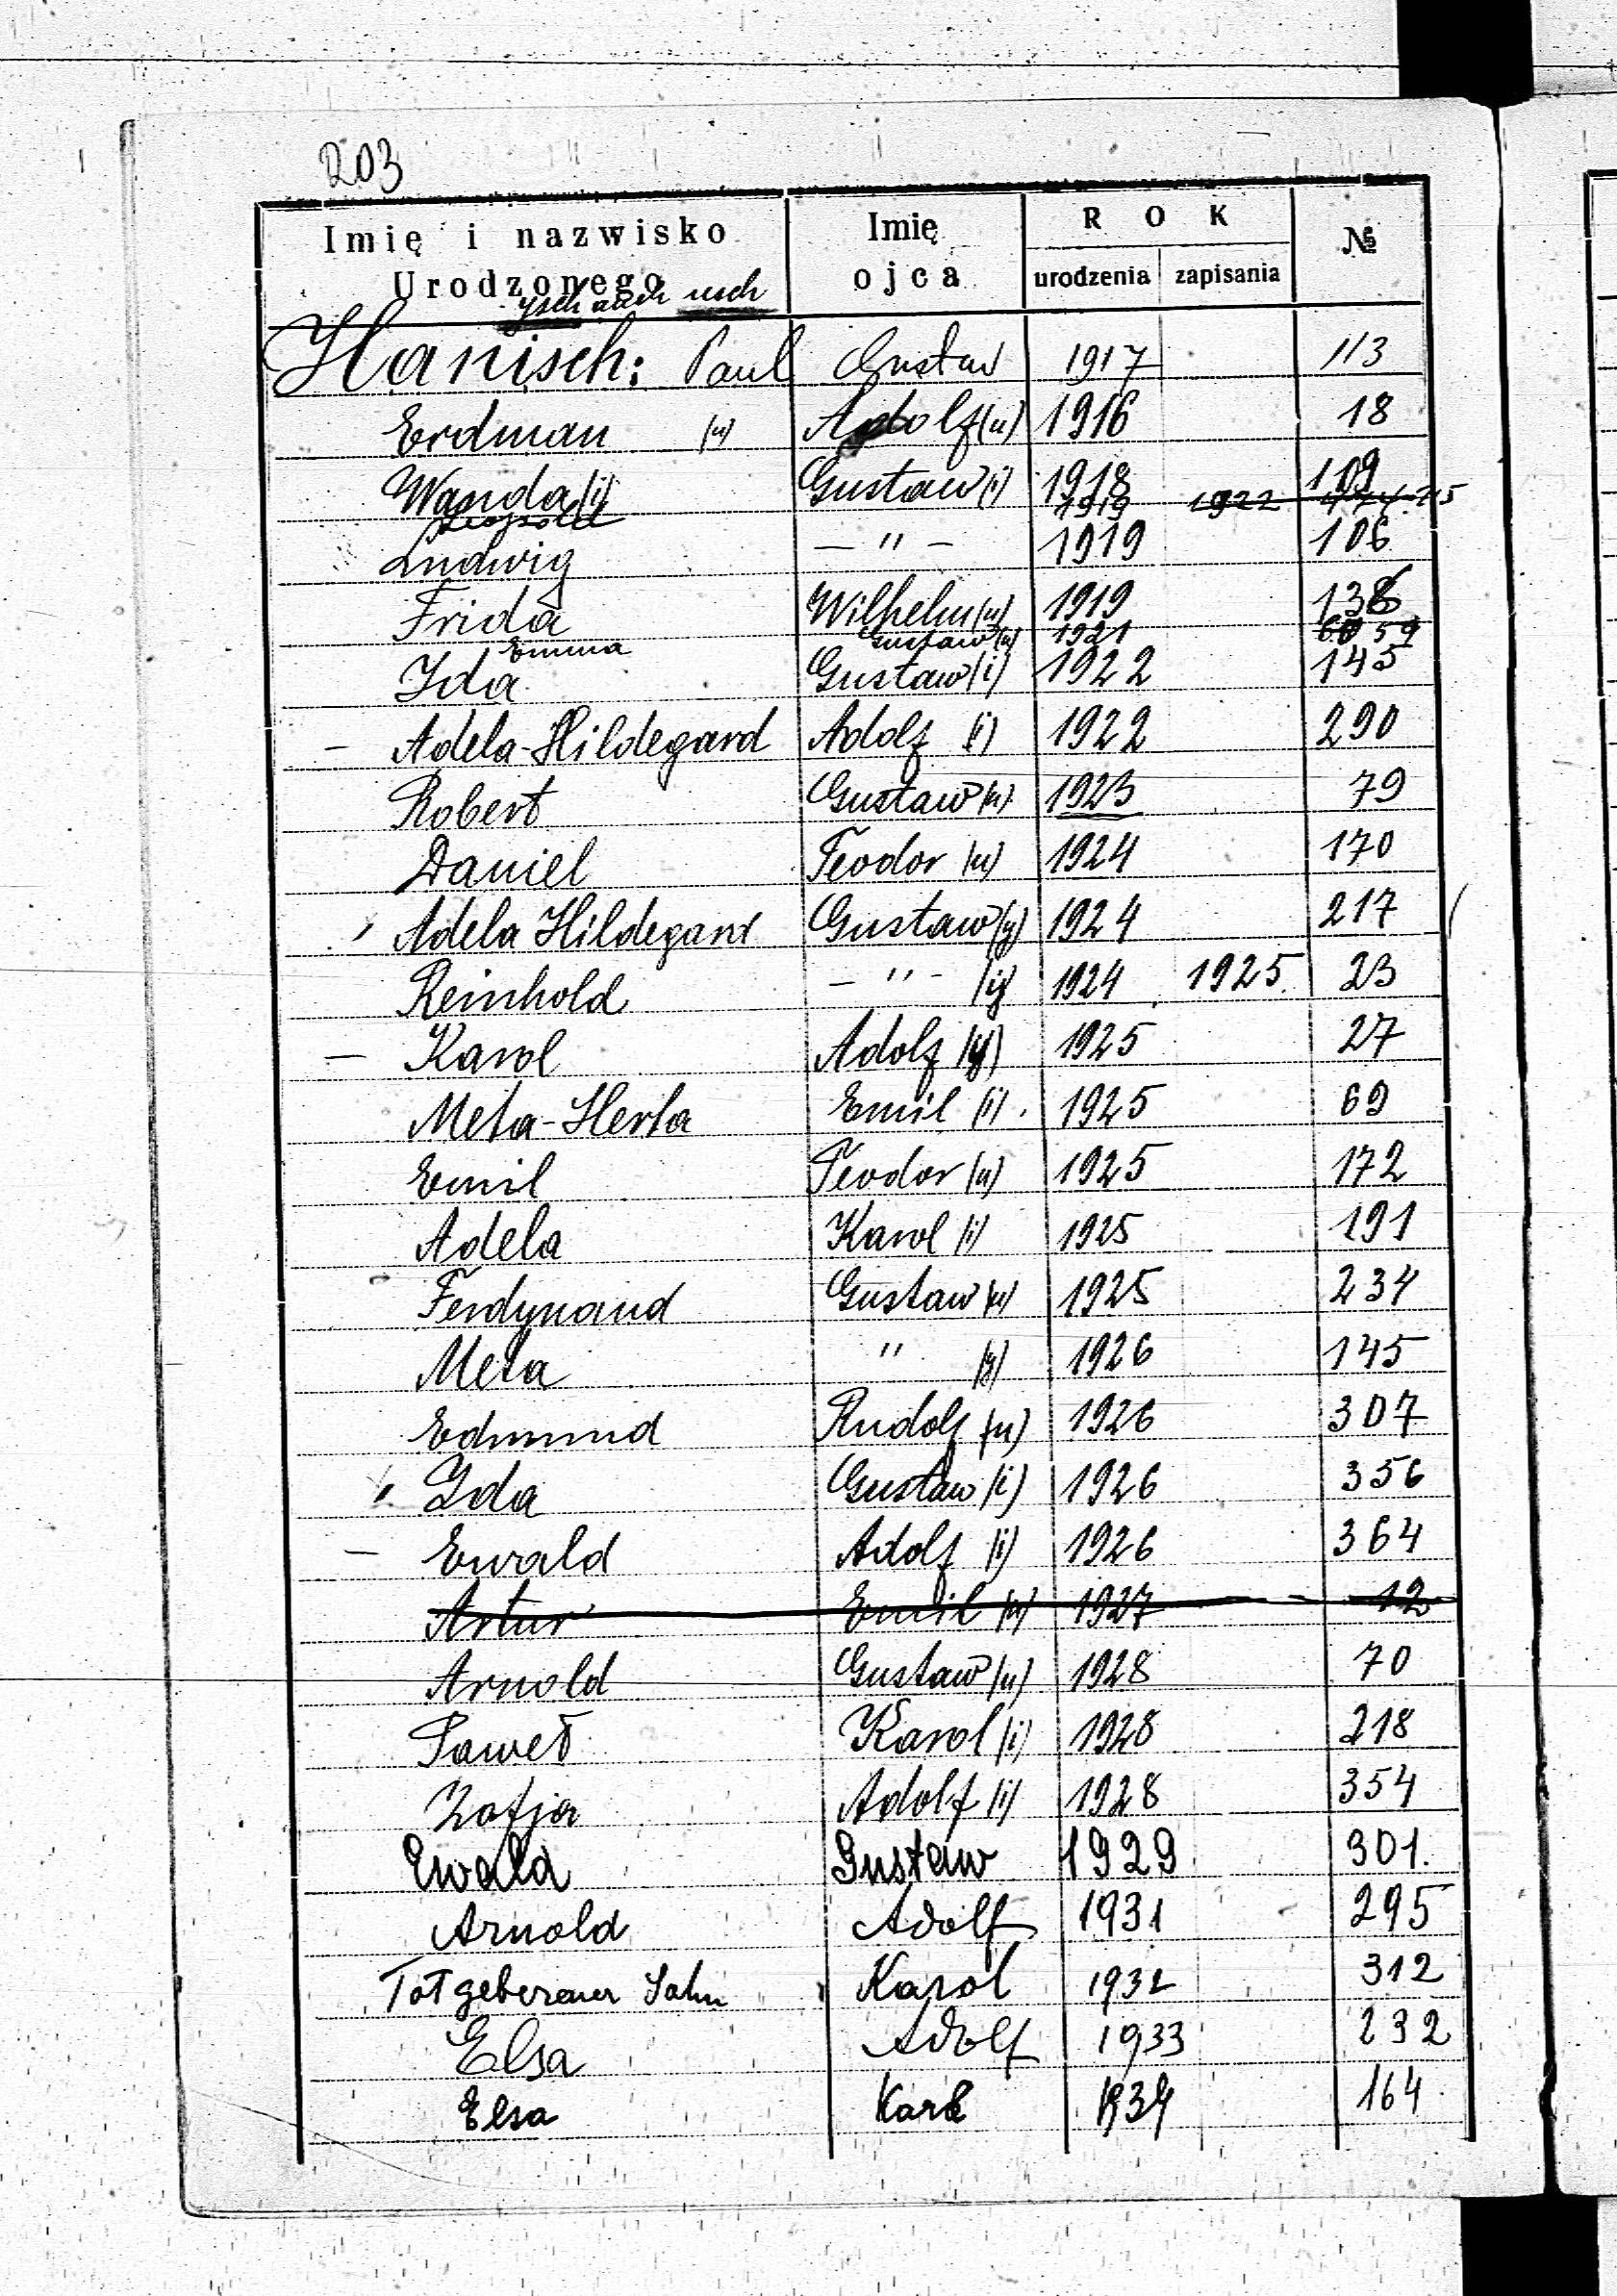 203
Imię i nazwisko Urodzonego | Imię ojca | ROK urodzenia | zapisania | №
ysch auch usch
Hanisch: Paul Gustav 1917 113
Erdman (u) Adolf (u) 1916 18
Wanda (i) Gustaw (i) 1918 109
Leopold 1919 1922
Ludwig — " — 1919 106
Frida Wilhelm (u) 1919 138
Emma Gustaw (u) 1921 59
Ida Gustaw (i) 1922 145
— Adela-Hildegard Adolf (i) 1922 290
Robert Gustaw (u) 1923 79
Daniel Teodor (u) 1924 170
Adela Hildegard Gustaw (y) 1924 217
Reinhold — " — (y) 1924 1925. 23
— Karol Adolf (y) 1925 27
Meta-Herta Emil (i). 1925 69
Emil Teodor (u) 1925 172
Adela Karol (i) 1925 191
Ferdynand Gustaw (u) 1925 234
Meta " (y) 1926 145
Edmund Rudolf (u) 1926 307
" Ida Gustaw (i) 1926 356
— Ewald Adolf (i) 1926 364
Artur Emil (u) 1927 12
Arnold Gustaw (u) 1928 70
Paweł Karol (i) 1928 218
Zofja Adolf (i) 1928 354
Ewald Gustaw 1929 301.
Arnold Adolf 1931 295
Totgeborener Sohn Karol 1932 312
Elsa Adolf 1933 232
Elsa Karl 1934 164